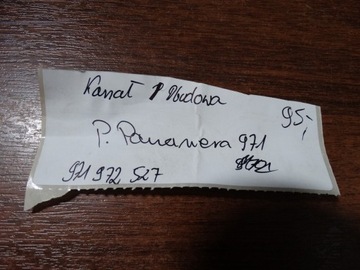 Kanał Obudowa
95,-
P. Panamera 971
971 972 527